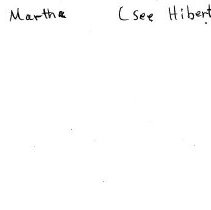 Martha (see Hibert